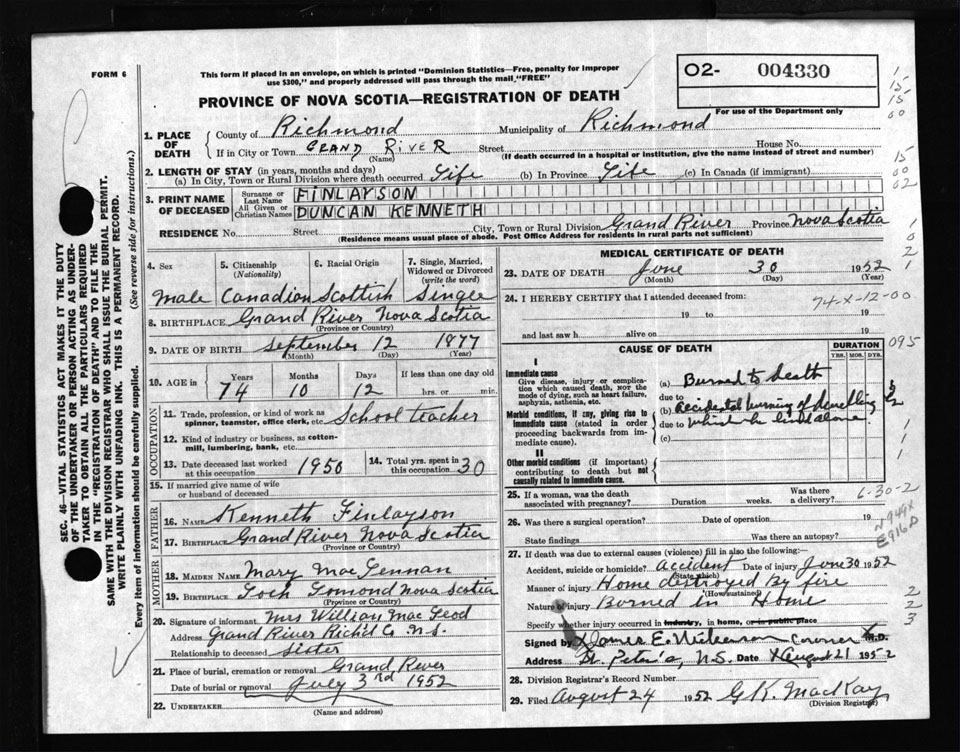 FORM 6
This form if placed in an envelope, on which is printed "Dominion Statistics—Free, penalty for improper
use $300," and properly addressed will pass through the mail "FREE"
PROVINCE OF NOVA SCOTIA—REGISTRATION OF DEATH
O2- 004330
For use of the Department only
1. PLACE OF DEATH
County of Richmond Municipality of Richmond
If in City or Town GRAND RIVER Street House No.
(Name) (If death occurred in a hospital or institution, give the name instead of street and number)
2. LENGTH OF STAY (in years, months and days)
(a) In City, Town or Rural Division where death occurred Life (b) In Province Life (c) In Canada (if immigrant)
3. PRINT NAME OF DECEASED
Surname or Last Name FINLAYSON
All Given or Christian Names DUNCAN KENNETH
RESIDENCE No. Street City, Town or Rural Division Grand River Province Nova Scotia
(Residence means usual place of abode. Post Office Address for residents in rural parts not sufficient)
4. Sex
male
5. Citizenship (Nationality)
Canadian
6. Racial Origin
Scottish
7. Single, Married, Widowed or Divorced (write the word)
Single
8. BIRTHPLACE Grand River Nova Scotia
(Province or Country)
9. DATE OF BIRTH September 12 1877
(Month) (Day) (Year)
10. AGE in Years Months Days If less than one day old
74 10 12 hrs. or min.
OCCUPATION
11. Trade, profession, or kind of work as spinner, teamster, office clerk, etc. School teacher
12. Kind of industry or business, as cotton-mill, lumbering, bank, etc.
13. Date deceased last worked at this occupation 1950
14. Total yrs. spent in this occupation 30
15. If married give name of wife or husband of deceased
FATHER
16. NAME Kenneth Finlayson
17. BIRTHPLACE Grand River Nova Scotia
(Province or Country)
MOTHER
18. MAIDEN NAME Mary MacLennan
19. BIRTHPLACE Loch Lomond Nova Scotia
(Province or Country)
20. Signature of informant Mrs William MacLeod
Address Grand River Rich'd Co N.S.
Relationship to deceased Sister
21. Place of burial, cremation or removal Grand River
Date of burial or removal July 3rd 1952
22. UNDERTAKER
(Name and address)
MEDICAL CERTIFICATE OF DEATH
23. DATE OF DEATH June 30 1952
(Month) (Day) (Year)
24. I HEREBY CERTIFY that I attended deceased from:
74-X-12-00
19 to 19
and last saw h alive on 19
095
CAUSE OF DEATH
DURATION
YRS. MOS. DYS.
I
Immediate cause
Give disease, injury or complication which caused death, NOT the mode of dying, such as heart failure, asphyxia, asthenia, etc.
(a) Burned to death
due to
Morbid conditions, if any, giving rise to immediate cause (stated in order proceeding backwards from immediate cause).
(b) Accidental burning of dwelling
due to which he lived alone
(c)
II
Other morbid conditions (if important) contributing to death but not causally related to immediate cause.
25. If a woman, was the death associated with pregnancy? Duration weeks. Was there a delivery?
6-30-2
26. Was there a surgical operation? Date of operation 19
State findings Was there an autopsy?
N949X
E916D
27. If death was due to external causes (violence) fill in also the following:—
Accident, suicide or homicide? Accident Date of injury June 30 1952
(State which)
Manner of injury Home destroyed By fire
(How sustained)
Nature of injury Burned in Home
Specify whether injury occurred in industry, in home, or in public place
Signed by James E. Coroner M.D.
Address St. Peter's, N.S. Date August 21 1952
28. Division Registrar's Record Number
29. Filed August 24 1952 G K. MacKay
(Division Registrar)
SEC. 46—VITAL STATISTICS ACT MAKES IT THE DUTY
OF THE UNDERTAKER OR PERSON ACTING AS UNDER-
TAKER TO OBTAIN ALL THE PARTICULARS REQUIRED
IN THE "REGISTRATION OF DEATH" AND TO FILE THE
SAME WITH THE DIVISION REGISTRAR WHO SHALL ISSUE THE BURIAL PERMIT.
WRITE PLAINLY WITH UNFADING INK. THIS IS A PERMANENT RECORD.
Every item of information should be carefully supplied. (See reverse side for instructions.)